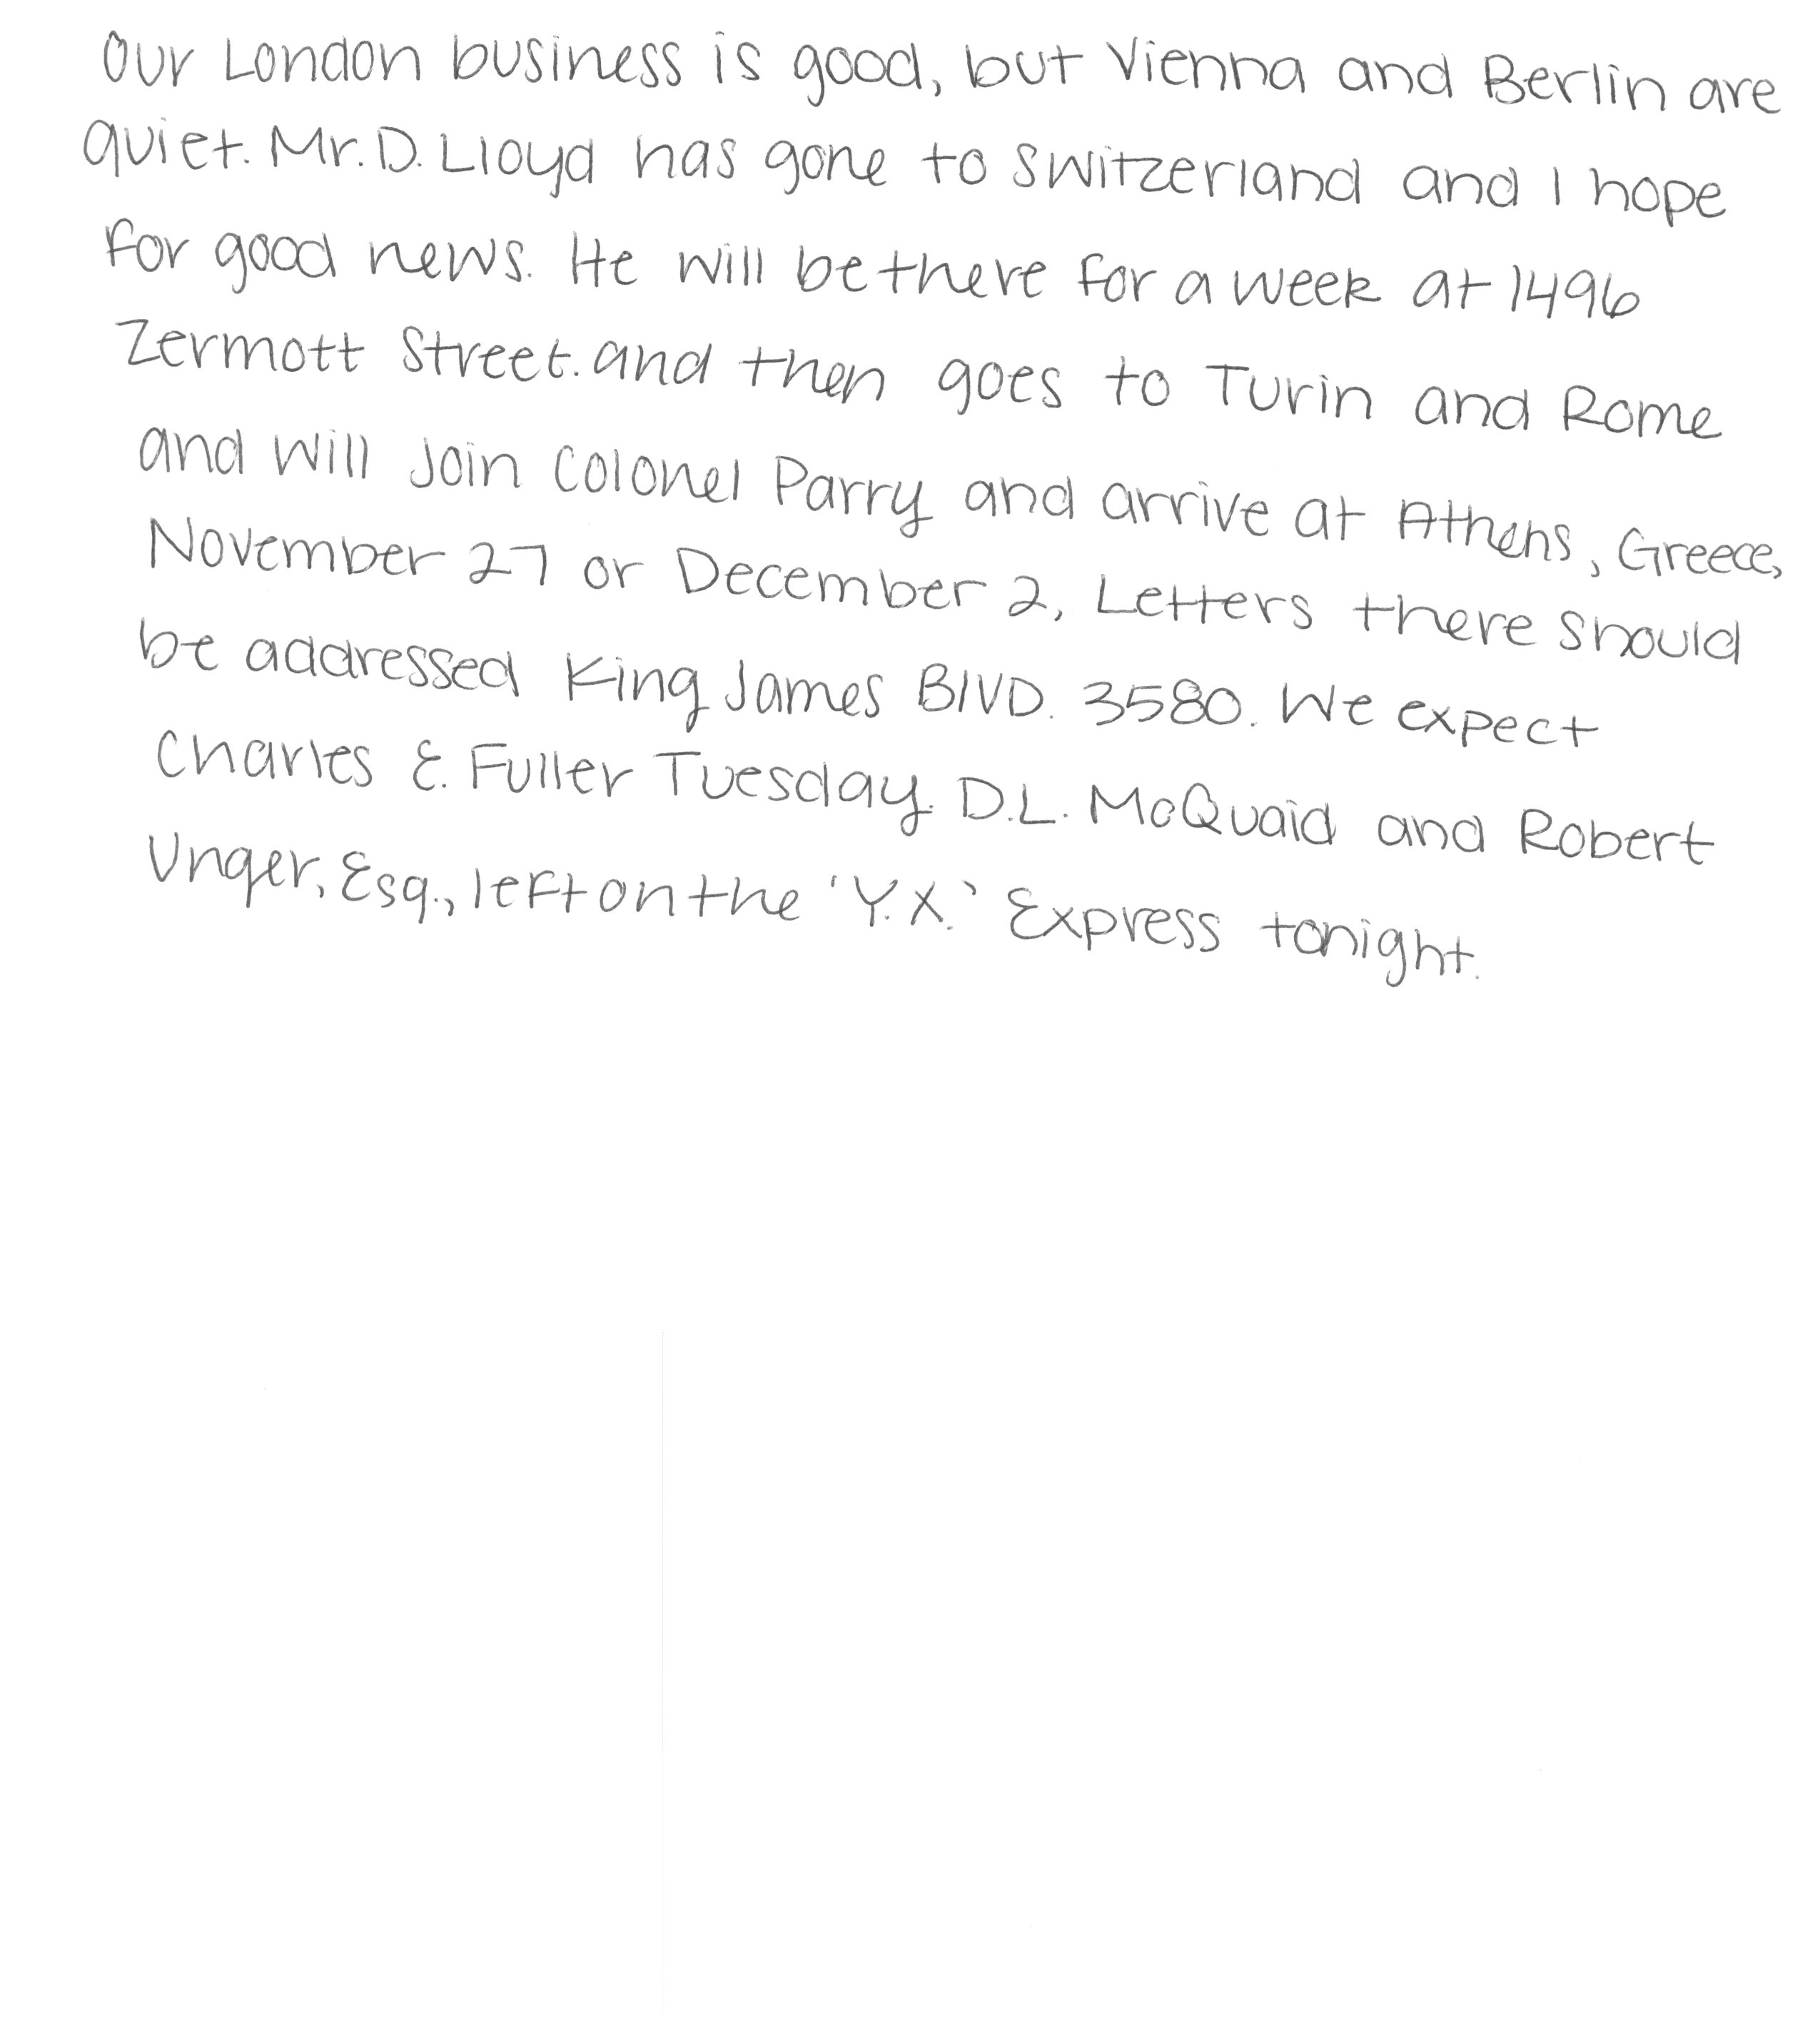 Our London business is good, but Vienna and Berlin are
quiet. Mr. D. Lloyd has gone to Switzerland and I hope
for good news. He will be there for a week at 1496
Zermott Street. and then goes to Turin and Rome
and will join Colonel Parry and arrive at Athens, Greece,
November 27 or December 2. Letters there should
be addressed King James BlVD. 3580. We expect
Charles E. Fuller Tuesday. D.L. McQuaid and Robert
Unger, Esq., left on the 'Y.X.' Express tonight.